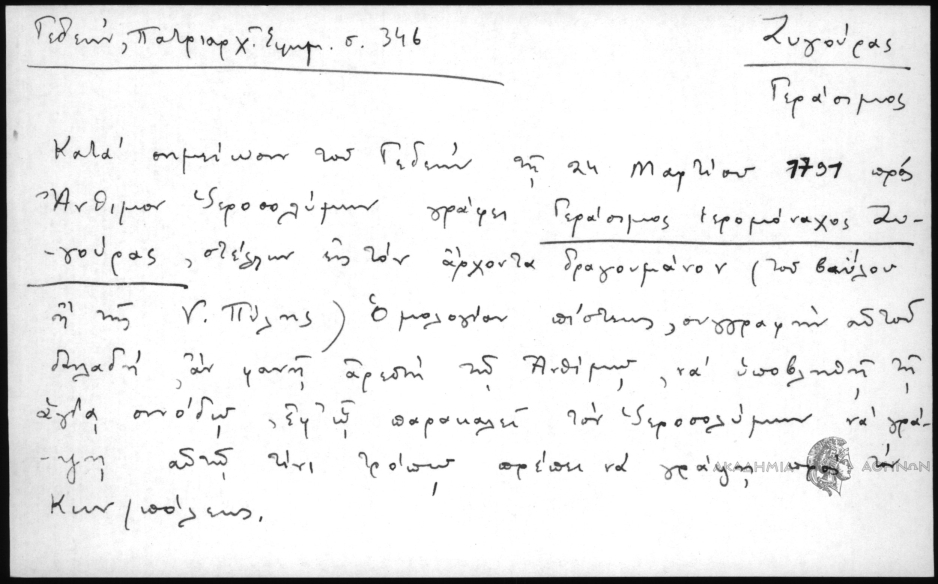 Γεδεών, Πατριαρχ. Ἐφημ. σ. 346
Ζυγούρας
Γεράσιμος
Κατά σημείωσιν τοῦ Γεδεών τῇ 24 Μαρτίου 1791 πρός
Ἄνθιμον Ἱεροσολύμων γράφει Γεράσιμος ἱερομόναχος Ζυ-
-γούρας, στέλλων εἰς τόν ἄρχοντα δραγουμάνον (τοῦ βαΰλου
ἤ τῆς Ὑ. Πύλης) Ὁμολογίαν πίστεως, συγγραφήν αὐτοῦ
δηλαδή, ἄν φανῇ ἀρεστή τῷ Ἀνθίμῳ, νά ὑποβληθῇ τῇ
ἁγίᾳ συνόδῳ, ἐφ' ᾧ παρακαλεῖ τόν Ἱεροσολύμων νά γρά-
-ψῃ αὐτῷ τίνι τρόπῳ πρέπει νά γράψῃ πρός τόν
Κων/πόλεως.
ΑΚΑΔΗΜΙΑ ΑΘΗΝΩΝ